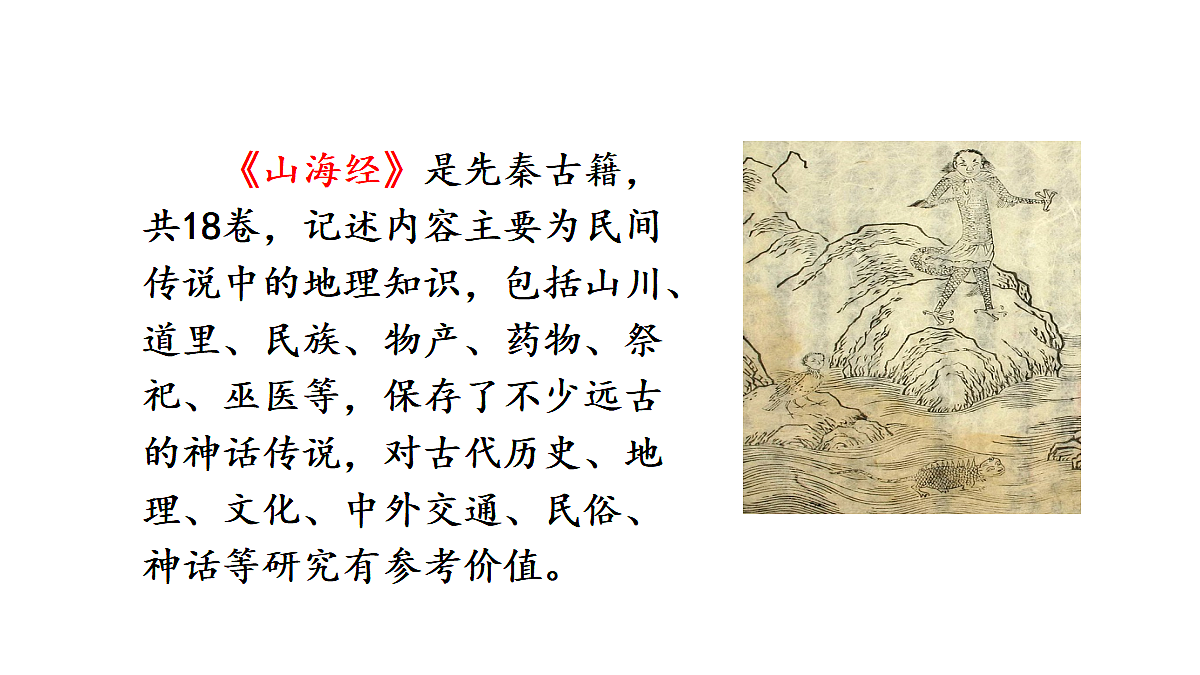 《山海经》是先秦古籍，
共18卷，记述内容主要为民间
传说中的地理知识，包括山川、
道里、民族、物产、药物、祭
祀、巫医等，保存了不少远古
的神话传说，对古代历史、地
理、文化、中外交通、民俗、
神话等研究有参考价值。